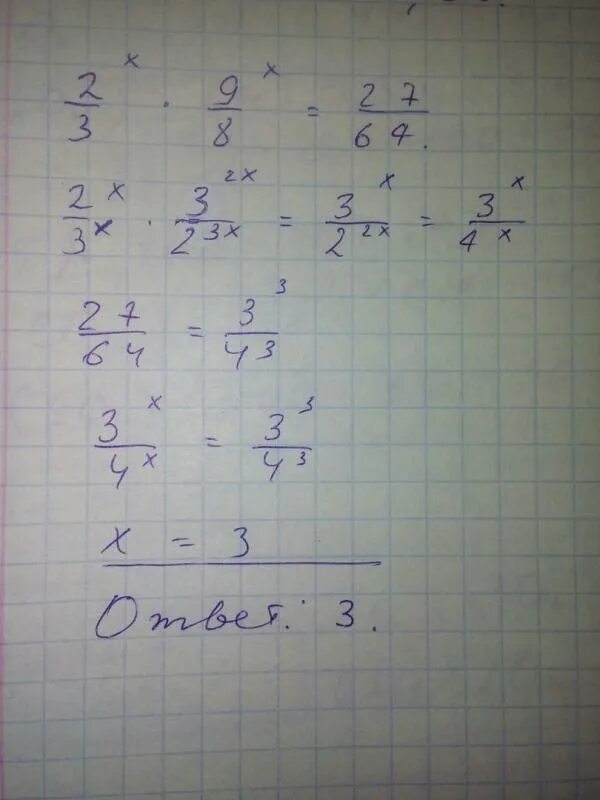 2/3^x · 9/8^x = 27/64.
2^x/3^x · 3^2x/2^3x = 3^x/2^2x = 3^x/4^x
27/64 = 3^3/4^3
3^x/4^x = 3^3/4^3
x = 3
Ответ: 3.